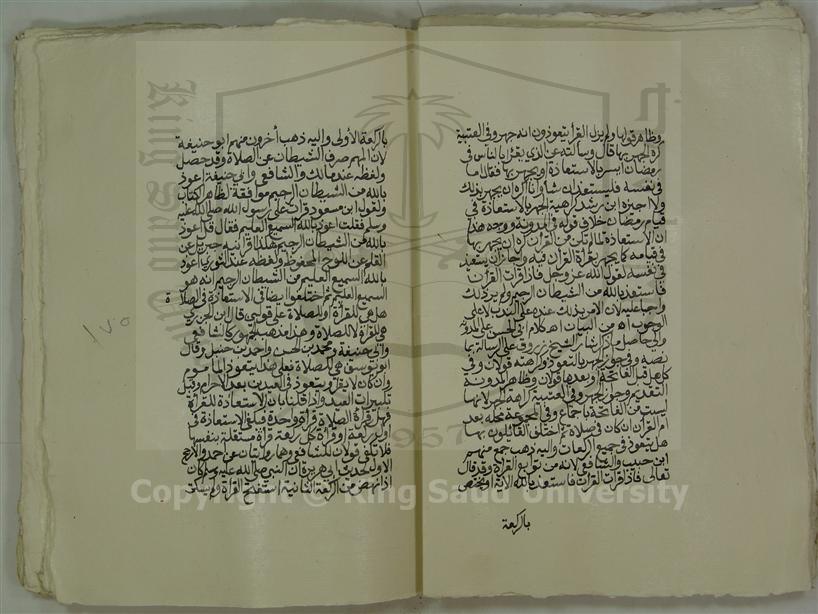 وظاهر قولها ولم يزل القرا يتعوذون انه جهر وفي العتبية
كره الجهر بها قال وسالته عن الذي يقرا بالناس في
رمضان ايسر بالاستعاذة او يجهر بها فقال اما
في نفسه فليستعذ ان شاء وانا اكره ان يجهر بذلك
ولا احبه ابن رشد كراهية الجهر بالاستعاذة في
قيام رمضان خلاف قوله في المدونة ووجه هذا
ان الاستعاذة لما لم تكن من القران كره ان يجهر بها
في قيامه كما يجهر بقراة القران فيه واجاز ان يستعيذ
في نفسه لقول الله عز وجل فاذا قرات القران
فاستعذ بالله من الشيطان الرجيم ولم ير ذلك
واجبا عليه لان الامر بذلك عنده على الندب لا على
الوجوب اه من البيان اه كلام ابي الحسن على المدونة
والحاصل ما ذكره الشيخ زروق على الرسالة بما
نصه وفي جواز الجهر بالتعوذ وكراهته قولان وفي
كونه قبل الفاتحة او بعدها قولان وظاهر المدونة
التقديم وجواز الجهر وفي العتبية كراهة الجهر لانها
ليست من الفاتحة باجماع وفي المجموعة محله بعد
ام القران ان كان في صلاة ثم اختلف القائلون بها
هل يتعوذ في جميع الركعات واليه ذهب جمع منهم
ابن حبيب والشافعي لانه من توابع القراة وقد قال
تعالى فاذا قرات القران فاستعذ بالله الاية او يختص
بالركعة
بالركعة الاولى واليه ذهب اخرون منهم ابو حنيفة
لان المهم صرف الشيطان عن الصلاة وقد حصل
ولفظه عند مالك والشافعي وابي حنيفة اعوذ
بالله من الشيطان الرجيم موافقة لظاهر الكتاب
ولقول ابن مسعود قرات على رسول الله صلى الله عليه
وسلم فقلت اعوذ بالله السميع العليم فقال قل اعوذ
بالله من الشيطان الرجيم هكذا اقرانيه جبريل عن
القلم عن اللوح المحفوظ ولفظه عند الثوري اعوذ
بالله السميع العليم من الشيطان الرجيم انه هو
السميع العليم ثم اختلفوا ايضا في الاستعاذة في الصلاة
هل هي للقراة او للصلاة على قولين قال ابن الجزري
هي للقراة لا للصلاة وهذا مذهب الجمهور كالشافعي
وابي حنيفة ومحمد بن الحسن واحمد بن حنبل وقال
ابو يوسف هي للصلاة فعلى هذا يتعوذ الماموم
وان كان لا يقرا ويتعوذ في العيدين بعد الاحرام وقبل
تكبيرات العيد واذا قلنا بان الاستعاذة للقراة
فهل قراة الصلاة قراة واحدة فيكفي الاستعاذة في
اول ركعة او قراة كل ركعة قراة مستقلة بنفسها
فلا تكفي قولان للشافعي وهما روايتان عن احمد والارجح
الاول لحديث ابي هريرة ان النبي صلى الله عليه وسلم كان
اذا نهض من الركعة الثانية استفتح القراة ولم يسكت
١٧٥
Copyright © King Saud University
King Saud
1957